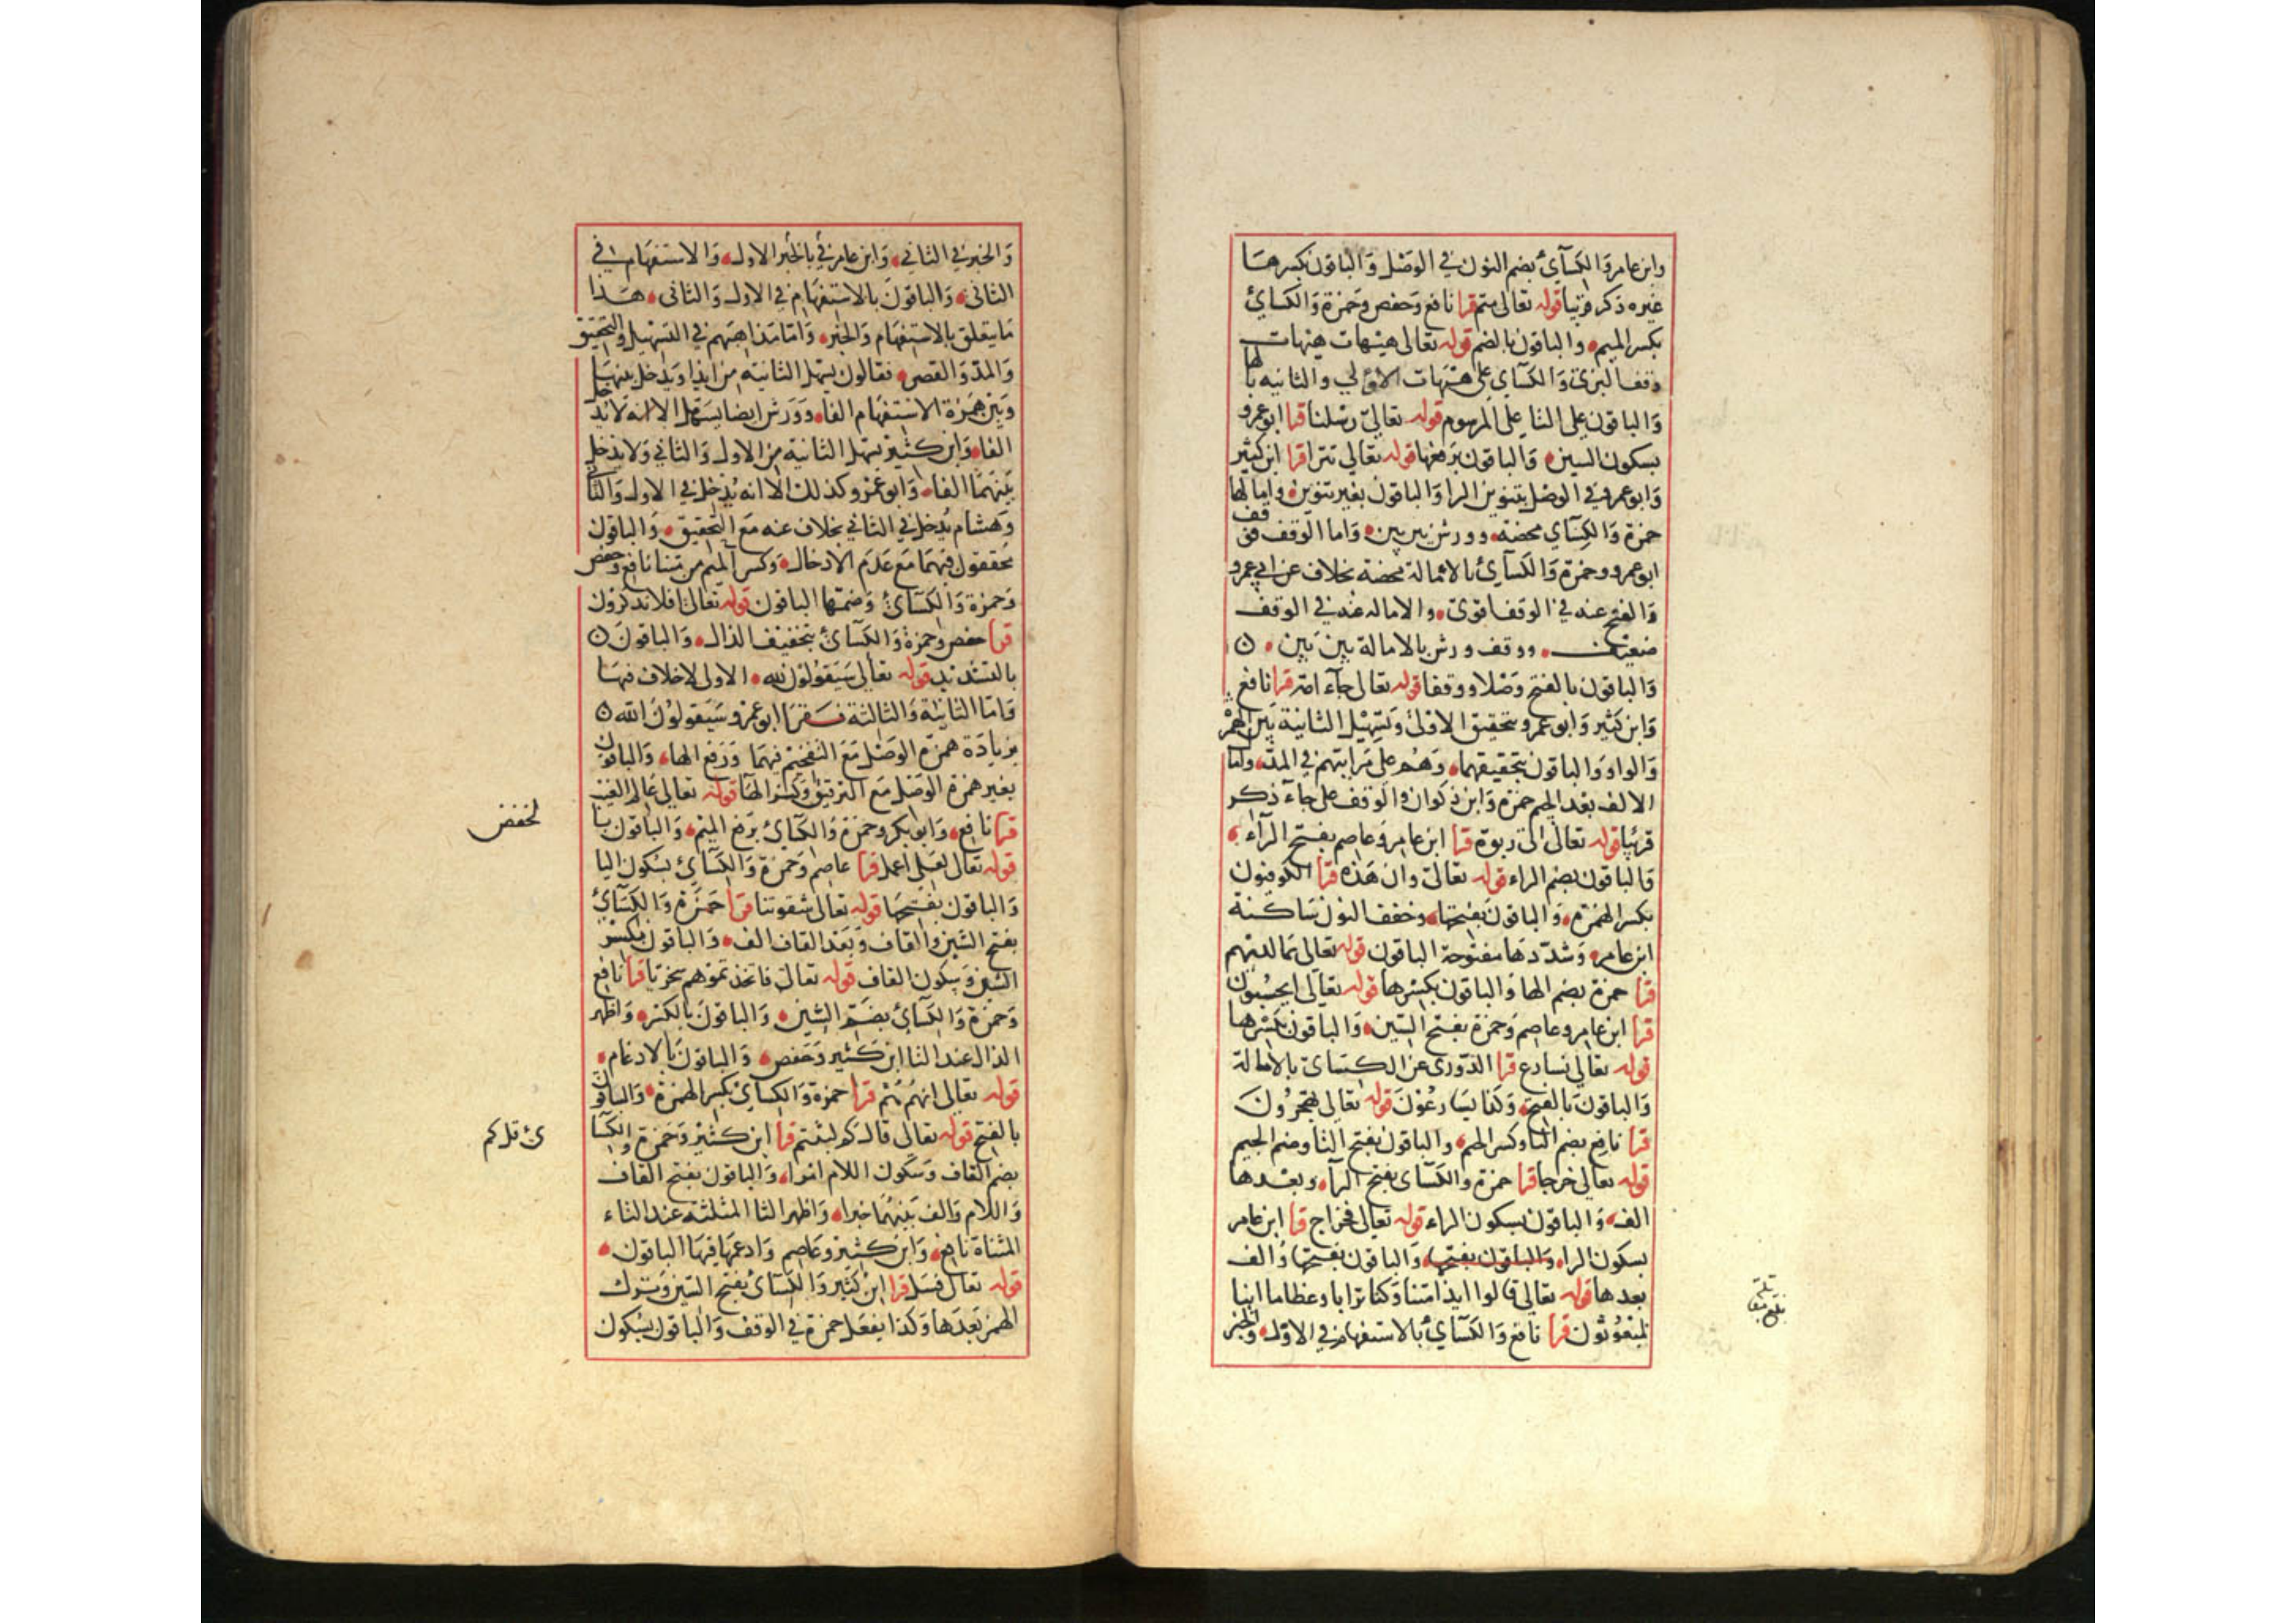 وابن عامر وَالكسَآئ بضم النون في الوَصْل وَالباقون بكسرهَا
غيره ذكر قريبا قوله تعالى متم قرا نافع وَحفص وَحمزة وَالكسائ
بكسر الميم والباقون بالضم قوله تعالى هيهات هيهات
وقف البزى وَالكسَآي على هيهات الاولي والثانيه بالها
وَالباقون على التا على المرسوم قوله تعاليٰ رسلنا قرا ابو عمرو
بسكون السين وَالباقون برفعها قوله تعالي تترا قرا ابن كثير
وَابو عمرو في الوصْل بتنوين الرا وَالباقون بغير تنوين وامالها
حمزة وَالكسَآي محضة وورش بين بين وَاما الوقف فوقف
ابو عمرو وحمزة وَالكسَآئ بالامالة محضة بخلاف عن ابي عمرو
وَالفتح عنه في الوقف اقوى والاماله عنه في الوقف
ضعيف ووقف ورش بالامالة بين بَين ن
وَالباقون بالفتح وَصْلا ووقفا قوله تعالى جآء امة قرا نافع
وَابن كثير وَابو عمرو بتحقيق الاولى وَتسْهيل الثانية بَين الهمز
وَالواو وَالباقون بتحقيقهما وَهُم على مَراتبهم في المد وامَا
الالف بعد الجيم حمزة وَابن ذكوان والوقف على جاء ذكر
قريبًا قوله تعالى الى ربوة قرا ابن عامر وعاصم بفتح الرآء
وَالباقون بضم الراء قوله تعالىٰ وان هَذه قرا الكوفيون
بكسر الهمزة وَالباقون بفتحها وخفف النون سَاكنة
ابن عامر وَشدّدهَا مفتوحة الباقون قوله تعالى بمَا لديهم
قرا حمزة بضم الها وَالباقون بكسرها قوله تعالى ايحسبون
قرا ابن عامر وعاصم وَحمزة بفتح السّين وَالباقون بكسرها
قوله تعالى نسارع قرا الدّورى عن الكسَائ بالامالة
وَالباقونَ بالفتح وَكذا يسَارعُونَ قوله تعالى تهجرُونَ
قرا نافع بضم التا وكسر الجيم والباقون بفتح التا وضم الجيم
قوله تعالى خرجا قرا حمزة والكسَآئ بفتح الرآ وبعدها
الف وَالباقون بسكون الراء قوله تعالى فخراج قرا ابن عامر
بسكون الرا وَالباقون بفتحها وَالباقون بفتحها وَالف
بعدها قوله تعالى قالوا ايذا متنا وَكنا ترابا وعظاما اينا
لمبعُوثون قرا نافع وَالكسَآئ بالاستفهام في الاوّل وَالخبر
وَالخبر في الثاني وَابن عامر في بالخبر الاول وَالاستفهام في
الثانى وَالباقونَ بالاستفهَام في الاول وَالثانى هَذا
مَا يتعلق بالاستفهَام وَالخبر وَامّا مذاهبهم في التسْهيل والتحقيق
وَالمد وَالقصر فقالون يسهل الثانيه من ايذا وَيدخل بينهَا
وَبَين همزة الاستفهام الفا وَورش ايضا يسَهل الا انه لا يدخل
الفا وَابن كثير يسهل الثانية من الاول وَالثاني وَلا يدخل
بَينهمَا الفا وَابو عمرو كذلك الا انه يُدخل في الاول وَالثاني
وَهشام يُدخل في الثاني بخلاف عنه مَع التحقيق وَالباقون
يحققون فيهمَا مَع عَدَم الادخال وَكسر الميم من متنا نافع وحفص
وَحمزة وَالكسَائ وَضمهَا الباقون قوله تعالىٰ افلا تذكرون
قرا حفص وحمزة وَالكسَآئ بتخفيف الذال وَالباقونَ ن
بالتشديد قوله تعالى سَيَقولوُن لله الاولى لاخلاف فيهَا
وَامّا الثانية وَالثالثة فقرَا ابو عمرو سَيَقولوُنَ الله ن
بزيادَة همزة الوَصْل مَعَ التفخيم فيهمَا وَرَفع الها وَالباقون
بغير همزة الوَصْل مَع الترقيق وَكسر الهَا قوله تعالي عَالم الغيب
قرا نافع وَابو بكر وحمزة وَالكسَآئ برَفع الميم وَالباقون با
لخفض
قوله تعالى لعَلي اعمل قرا عاصم وَحمزة وَالكسَآئ بسْكون اليا
وَالباقون بفتحهَا قوله تعالى شقوتنا قرا حَمزَة وَالكسَآئ
بفتح الشين والقاف وَبَعْد القاف الف وَالباقون بكسر
الشين وَسكون القاف قوله تعالىٰ فاتخذتموهم سخريا قرا نافع
وَحمزة وَالكسَآئ بضَمّ السّين وَالباقونَ بالكسر وَاظهر
الذال عند التا ابن كَثير وَحَفص وَالباقونَ بالادغام
قوله تعالى انهُم هُمْ قرا حمزة وَالكسآئ بكسر الهمزة وَالباقون
بالفتح قوله تعالى قال كم لبثتم قرا ابن كَثير وَحَمزة والكسَا
ئ قل كم
بضم القاف وَسَكون اللام امرا وَالباقون بفتح القاف
وَاللام وَالف بَينهُمَا خبرا وَاظهر الثا المثلثة عند التاء
المثناة نافع وَابن كثير وعَاصم وَادغمهَا فيهَا الباقون
قوله تعالى فسَل قرا ابن كثير وَالكسَائ بفتح السّين وَبترك
الهمز بَعدَهَا وَكذا يفعَل حمزة في الوقف وَالباقون بسْكون